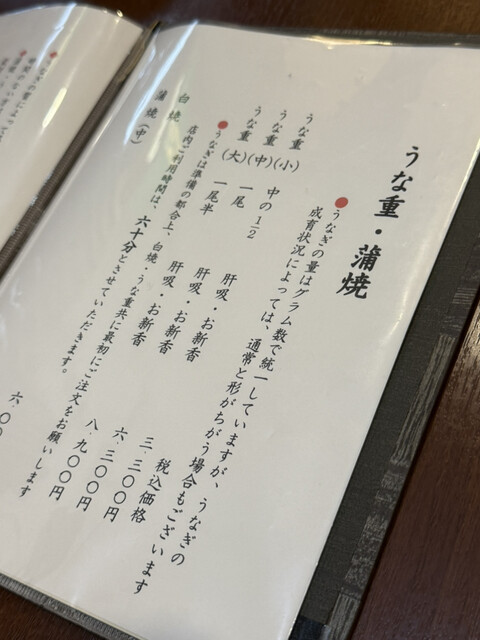 うな重・蒲焼
●うなぎの量はグラム数で統一していますが、うなぎの
成育状況によっては、通常と形がちがう場合もございます
税込価格
うな重(小) 中の1/2 肝吸・お新香 三、三〇〇円
うな重(中) 一尾 肝吸・お新香 六、三〇〇円
うな重(大) 一尾半 肝吸・お新香 八、九〇〇円
●うなぎは準備の都合上、白焼・うな重共に最初にご注文をお願いします
店内ご利用時間は、六十分とさせていただきます。
白焼
蒲焼(中)
六、〇〇